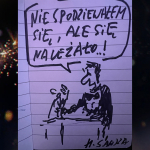 NIE SPODZIEWAŁEM
SIĘ, ALE SIĘ
NALEŻAŁO..!